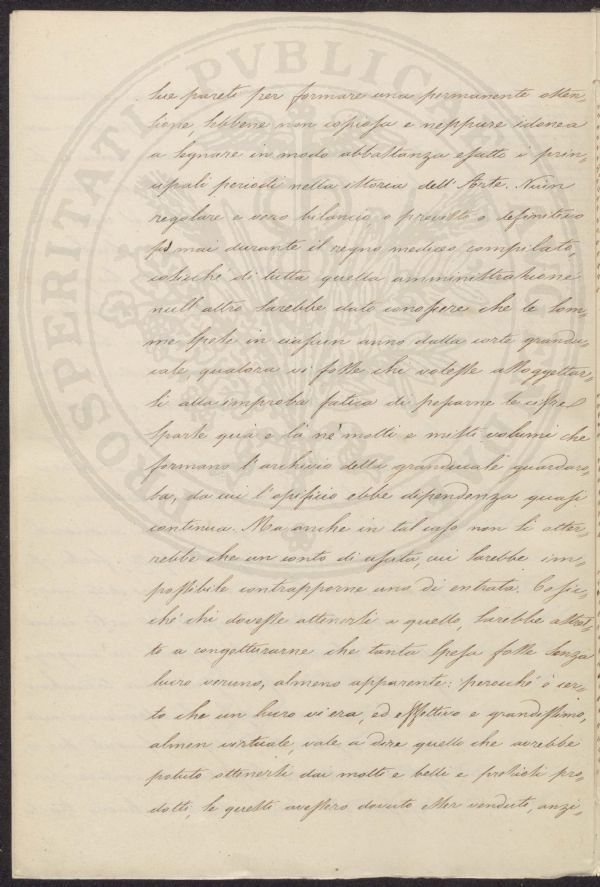 sue pareti per formare una permanente osten-
sione, sebbene non copiosa e neppure idonea
a segnare in modo abbastanza esatto i prin-
cipali periodi nella istoria dell'Arte. Niun
regolare e vero bilancio o provisto o definitivo
fu mai durante il regno mediceo compilato,
cosicchè di tutta quella amministrazione
null'altro sarebbe dato conoscere che le som-
me spese in ciascun anno dalla corte grandu-
cale, qualora vi fosse chi volesse assoggettar-
si alla improba fatica di pescarne le cifre
sparse quà e là ne' molti e misti volumi che
formano l'archivio della granducale guardaro-
ba, da cui l'opificio ebbe dipendenza quasi
continua. Ma anche in tal caso non si otter-
rebbe che un conto di uscita, cui sarebbe im-
possibile contrapporne uno di entrata. Cosic-
chè chi dovesse attenersi a quello, sarebbe astret-
to a congetturarne che tanta spesa fosse senza
lucro veruno, almeno apparente: perocchè è cer-
to che un lucro vi era, ed effettivo e grandissimo,
almen virtuale, vale a dire quello che avrebbe
potuto ottenersi dai molti e belli e preziosi pro-
dotti, se questi avessero dovuto esser venduti, anzi-
PROSPERITATI PVBLICAE